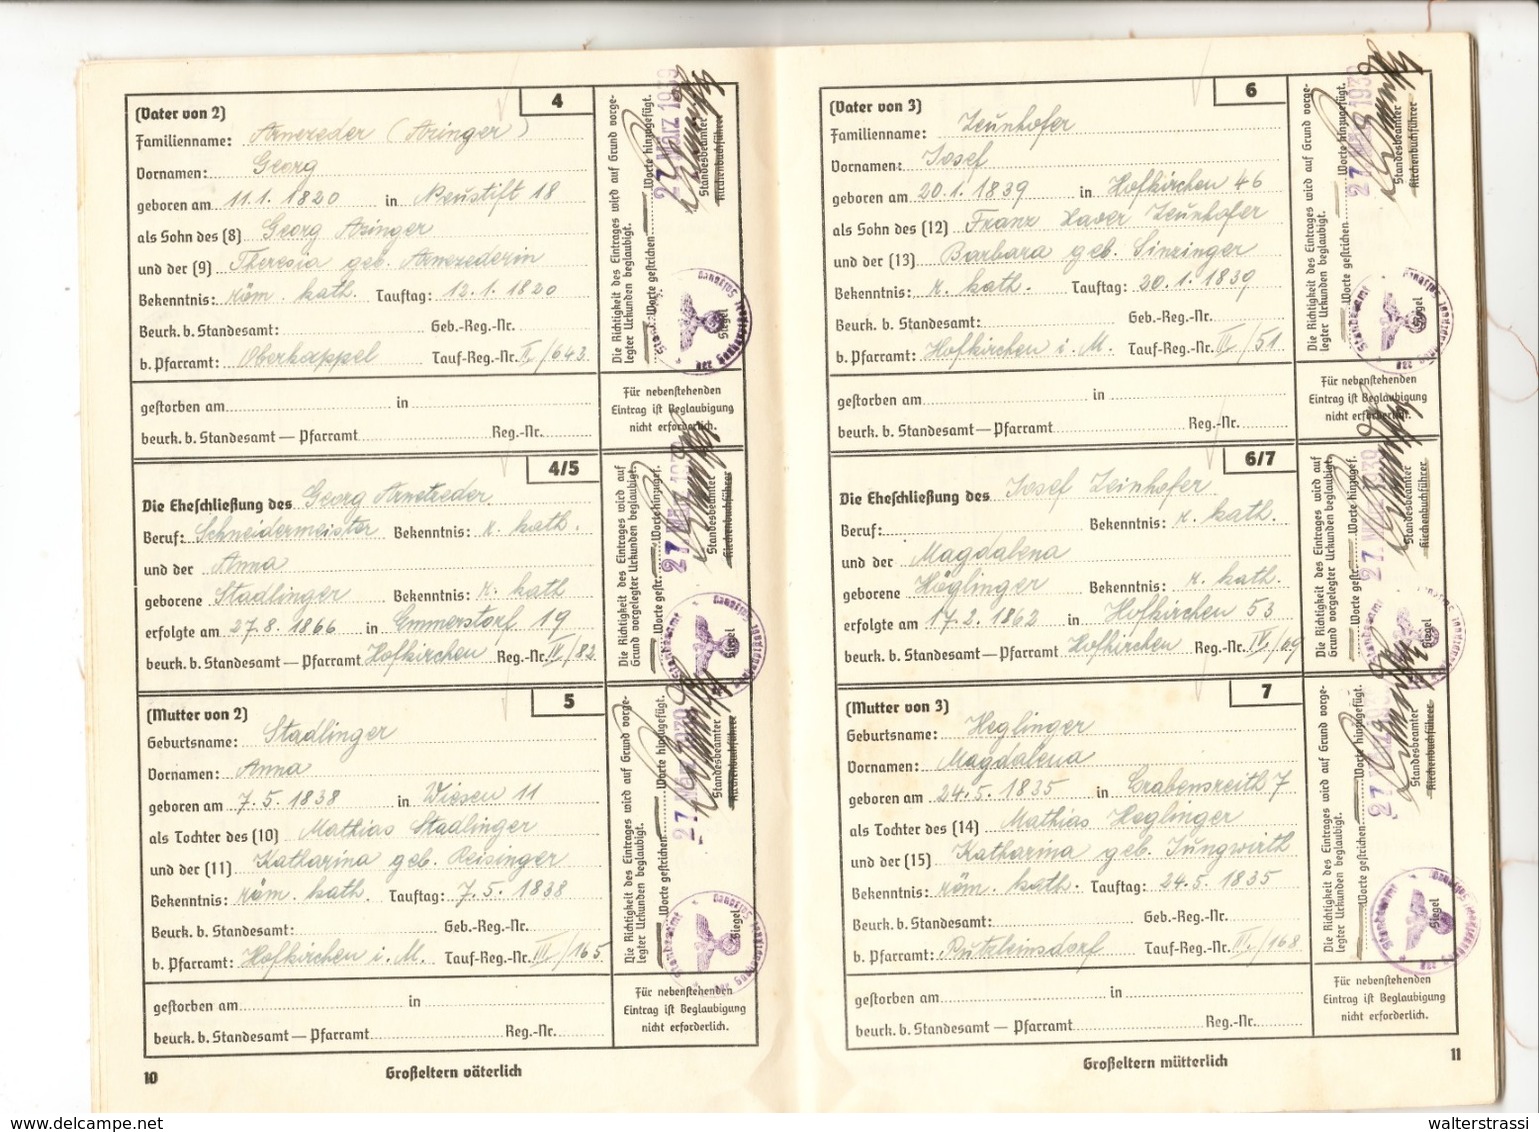 4
(Vater von 2)
Familienname: Arnezeder (Azinger)
Vornamen: Georg
geboren am 11.1.1820 in Neustift 18
als Sohn des (8) Georg Azinger
und der (9) Theresia geb. Arnezederin
Bekenntnis: röm. kath. Tauftag: 12.1.1820
Beurk. b. Standesamt: Geb.-Reg.-Nr.
b. Pfarramt: Oberkappel Tauf-Reg.-Nr. II/643.
gestorben am in
beurk. b. Standesamt — Pfarramt Reg.-Nr.
Die Richtigkeit des Eintrages wird auf Grund vorge-
legter Urkunden beglaubigt.
Worte gestrichen Worte hinzugefügt.
27. März 1939
Standesbeamter
Kirchenbuchführer
Siegel
Für nebenstehenden
Eintrag ist Beglaubigung
nicht erforderlich.
4/5
Die Eheschließung des Georg Arnetzeder
Beruf: Schneidermeister Bekenntnis: r. kath.
und der Anna
geborene Stadlinger Bekenntnis: r. kath
erfolgte am 27.8.1866 in Emmerstorf 19
beurk. b. Standesamt — Pfarramt Hofkirchen Reg.-Nr. IV/82
Die Richtigkeit des Eintrages wird auf
Grund vorgelegter Urkunden beglaubigt.
Worte gestr. Worte hinzugef.
Standesbeamter
Kirchenbuchführer
Siegel
5
(Mutter von 2)
Geburtsname: Stadlinger
Vornamen: Anna
geboren am 7.5.1838 in Wiesen 11
als Tochter des (10) Mathias Stadlinger
und der (11) Katharina geb. Reisinger
Bekenntnis: röm. kath. Tauftag: 7.5.1838
Beurk. b. Standesamt: Geb.-Reg.-Nr.
b. Pfarramt: Hofkirchen i. M. Tauf-Reg.-Nr. III/165
gestorben am in
beurk. b. Standesamt — Pfarramt Reg.-Nr.
Die Richtigkeit des Eintrages wird auf Grund vorge-
legter Urkunden beglaubigt.
Worte gestrichen Worte hinzugefügt.
Standesbeamter
Kirchenbuchführer
Siegel
Für nebenstehenden
Eintrag ist Beglaubigung
nicht erforderlich.
10
Großeltern väterlich
6
(Vater von 3)
Familienname: Zeunhofer
Vornamen: Josef
geboren am 20.1.1839 in Hofkirchen 46
als Sohn des (12) Franz Xaver Zeunhofer
und der (13) Barbara geb. Sinzinger
Bekenntnis: r. kath. Tauftag: 20.1.1839
Beurk. b. Standesamt: Geb.-Reg.-Nr.
b. Pfarramt: Hofkirchen i. M. Tauf-Reg.-Nr. III/51
gestorben am in
beurk. b. Standesamt — Pfarramt Reg.-Nr.
Die Richtigkeit des Eintrages wird auf Grund vorge-
legter Urkunden beglaubigt.
Worte gestrichen Worte hinzugefügt.
Standesbeamter
Kirchenbuchführer
Siegel
Für nebenstehenden
Eintrag ist Beglaubigung
nicht erforderlich.
6/7
Die Eheschließung des Josef Zeinhofer
Beruf: Bekenntnis: r. kath.
und der Magdalena
geborene Höglinger Bekenntnis: r. kath.
erfolgte am 17.2.1862 in Hofkirchen 53
beurk. b. Standesamt — Pfarramt Hofkirchen Reg.-Nr. IV/69
Die Richtigkeit des Eintrages wird auf
Grund vorgelegter Urkunden beglaubigt.
Worte gestr. Worte hinzugef.
Standesbeamter
Kirchenbuchführer
Siegel
7
(Mutter von 3)
Geburtsname: Heglinger
Vornamen: Magdalena
geboren am 24.5.1835 in Grabensreith 7
als Tochter des (14) Mathias Heglinger
und der (15) Katharina geb. Jungwirth
Bekenntnis: röm. kath. Tauftag: 24.5.1835
Beurk. b. Standesamt: Geb.-Reg.-Nr.
b. Pfarramt: Putzleinsdorf Tauf-Reg.-Nr. II./168
gestorben am in
beurk. b. Standesamt — Pfarramt Reg.-Nr.
Die Richtigkeit des Eintrages wird auf Grund vorge-
legter Urkunden beglaubigt.
Worte gestrichen Worte hinzugefügt.
Standesbeamter
Kirchenbuchführer
Siegel
Für nebenstehenden
Eintrag ist Beglaubigung
nicht erforderlich.
Großeltern mütterlich
11
www.delcampe.net
walterstrassi